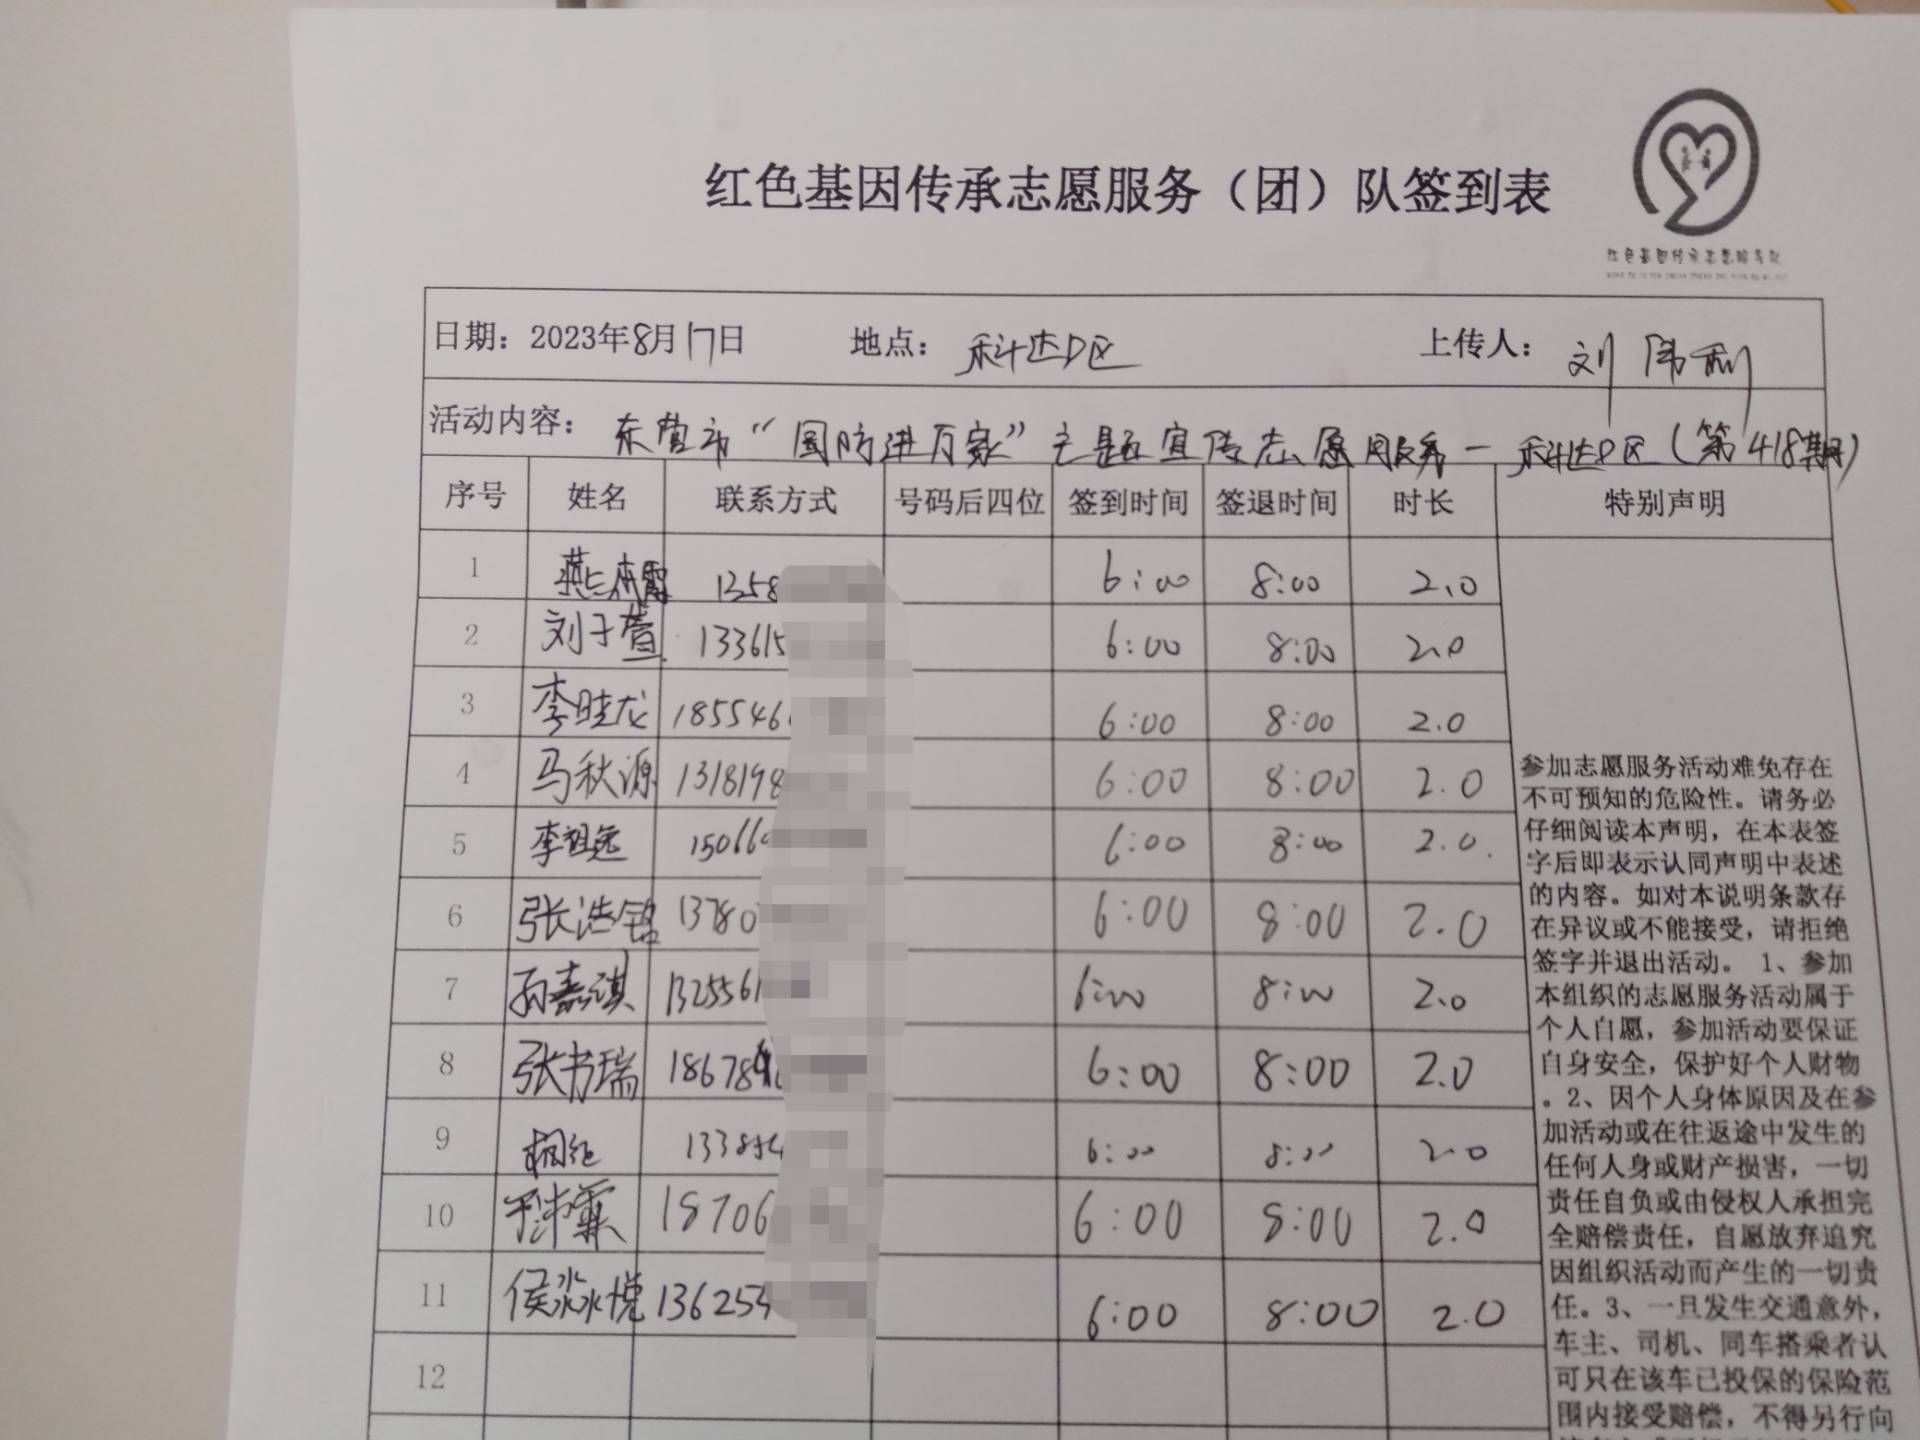 红色基因传承志愿服务（团）队签到表
红色基因传承志愿服务队
日期：2023年8月17日 地点：科达D区 上传人：刘伟利
活动内容：东营市“国防进万家”主题宣传志愿服务－科达D区（第418期）
序号 姓名 联系方式 号码后四位 签到时间 签退时间 时长 特别声明
1 燕 1358 6:00 8:00 2.0
2 刘子萱 133615 6:00 8:00 2.0
3 李晓龙 185546 6:00 8:00 2.0
4 马秋源 1318198 6:00 8:00 2.0
5 李祖逸 15066 6:00 8:00 2.0.
6 张浩铭 13780 6:00 8:00 2.0
7 孙嘉淇 1325561 6:00 8:00 2.0
8 张书瑞 18678 6:00 8:00 2.0
9 1338 6:00 8:00 2.0
10 18706 6:00 8:00 2.0
11 侯淼悦 136253 6:00 8:00 2.0
12
参加志愿服务活动难免存在
不可预知的危险性。请务必
仔细阅读本声明，在本表签
字后即表示认同声明中表述
的内容。如对本说明条款存
在异议或不能接受，请拒绝
签字并退出活动。 1、参加
本组织的志愿服务活动属于
个人自愿，参加活动要保证
自身安全，保护好个人财物
。2、因个人身体原因及在参
加活动或在往返途中发生的
任何人身或财产损害，一切
责任自负或由侵权人承担完
全赔偿责任，自愿放弃追究
因组织活动而产生的一切责
任。3、一旦发生交通意外，
车主、司机、同车搭乘者认
可只在该车已投保的保险范
围内接受赔偿，不得另行向